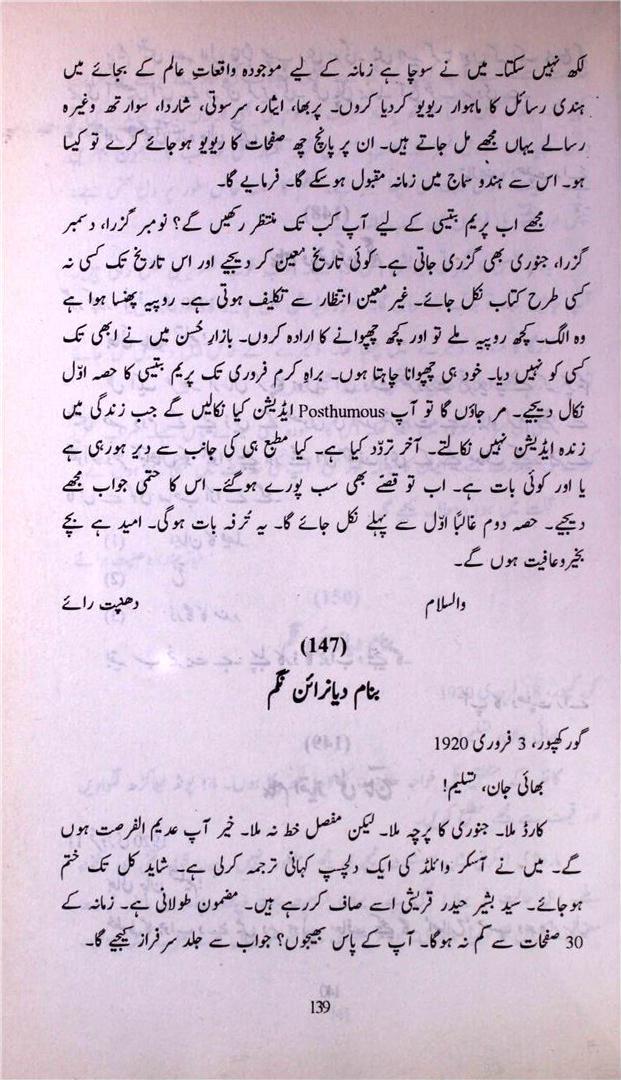 لکھ نہیں سکتا۔ میں نے سوچا ہے زمانہ کے لیے موجودہ واقعاتِ عالم کے بجائے میں
ہندی رسائل کا ماہوار ریویو کردیا کروں۔ پربھا، ایثار، سرسوتی، شاردا، سوارتھ وغیرہ
رسالے یہاں مجھے مل جاتے ہیں۔ ان پر پانچ چھ صفحات کا ریویو ہوجائے کرے تو کیسا
ہو۔ اس سے ہندو سماج میں زمانہ مقبول ہوسکے گا۔ فرمایے گا۔
مجھے اب پریم بتیسی کے لیے آپ کب تک منتظر رکھیں گے؟ نومبر گزرا، دسمبر
گزرا، جنوری بھی گزری جاتی ہے۔ کوئی تاریخ معین کر دیجیے اور اس تاریخ تک کسی نہ
کسی طرح کتاب نکل جائے۔ غیر معین انتظار سے تکلیف ہوتی ہے۔ روپیہ پھنسا ہوا ہے
وہ الگ۔ کچھ روپیہ ملے تو اور کچھ چھپوانے کا ارادہ کروں۔ بازارِ حُسن میں نے ابھی تک
کسی کو نہیں دیا۔ خود ہی چھپوانا چاہتا ہوں۔ براہِ کرم فروری تک پریم بتیسی کا حصہ اوّل
نکال دیجیے۔ مر جاؤں گا تو آپ Posthumous ایڈیشن کیا نکالیں گے جب زندگی میں
زندہ ایڈیشن نہیں نکالتے۔ آخر تردّد کیا ہے۔ کیا مطبع ہی کی جانب سے دیر ہورہی ہے
یا اور کوئی بات ہے۔ اب تو قصّے بھی سب پورے ہوگئے۔ اس کا حتمی جواب مجھے
دیجیے۔ حصہ دوم غالبًا اوّل سے پہلے نکل جائے گا۔ یہ تُرفہ بات ہوگی۔ امید ہے بچے
بخیروعافیت ہوں گے۔
والسلام دھنپت رائے
(147)
بنام دیانرائن نگم
گورکھپور، 3 فروری 1920
بھائی جان، تسلیم!
کارڈ ملا۔ جنوری کا پرچہ ملا۔ لیکن مفصل خط نہ ملا۔ خیر آپ عدیم الفرصت ہوں
گے۔ میں نے آسکر وائلڈ کی ایک دلچسپ کہانی ترجمہ کرلی ہے۔ شاید کل تک ختم
ہوجائے۔ سید بشیر حیدر قریشی اسے صاف کررہے ہیں۔ مضمون طولانی ہے۔ زمانہ کے
30 صفحات سے کم نہ ہوگا۔ آپ کے پاس بھیجوں؟ جواب سے جلد سرفراز کیجیے گا۔
139